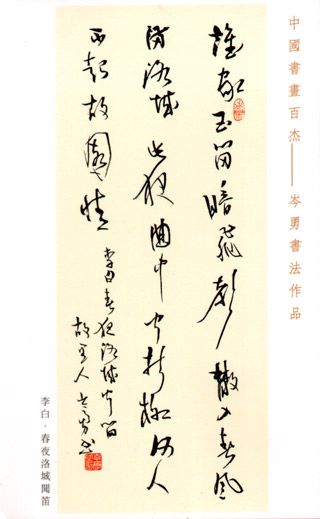 中國書畫百杰——岑勇書法作品
誰家玉笛暗飛聲散入春風
滿洛城此夜曲中聞折柳何人
不起故園情
李白春夜洛城聞笛
人岑勇书
李白·春夜洛城聞笛